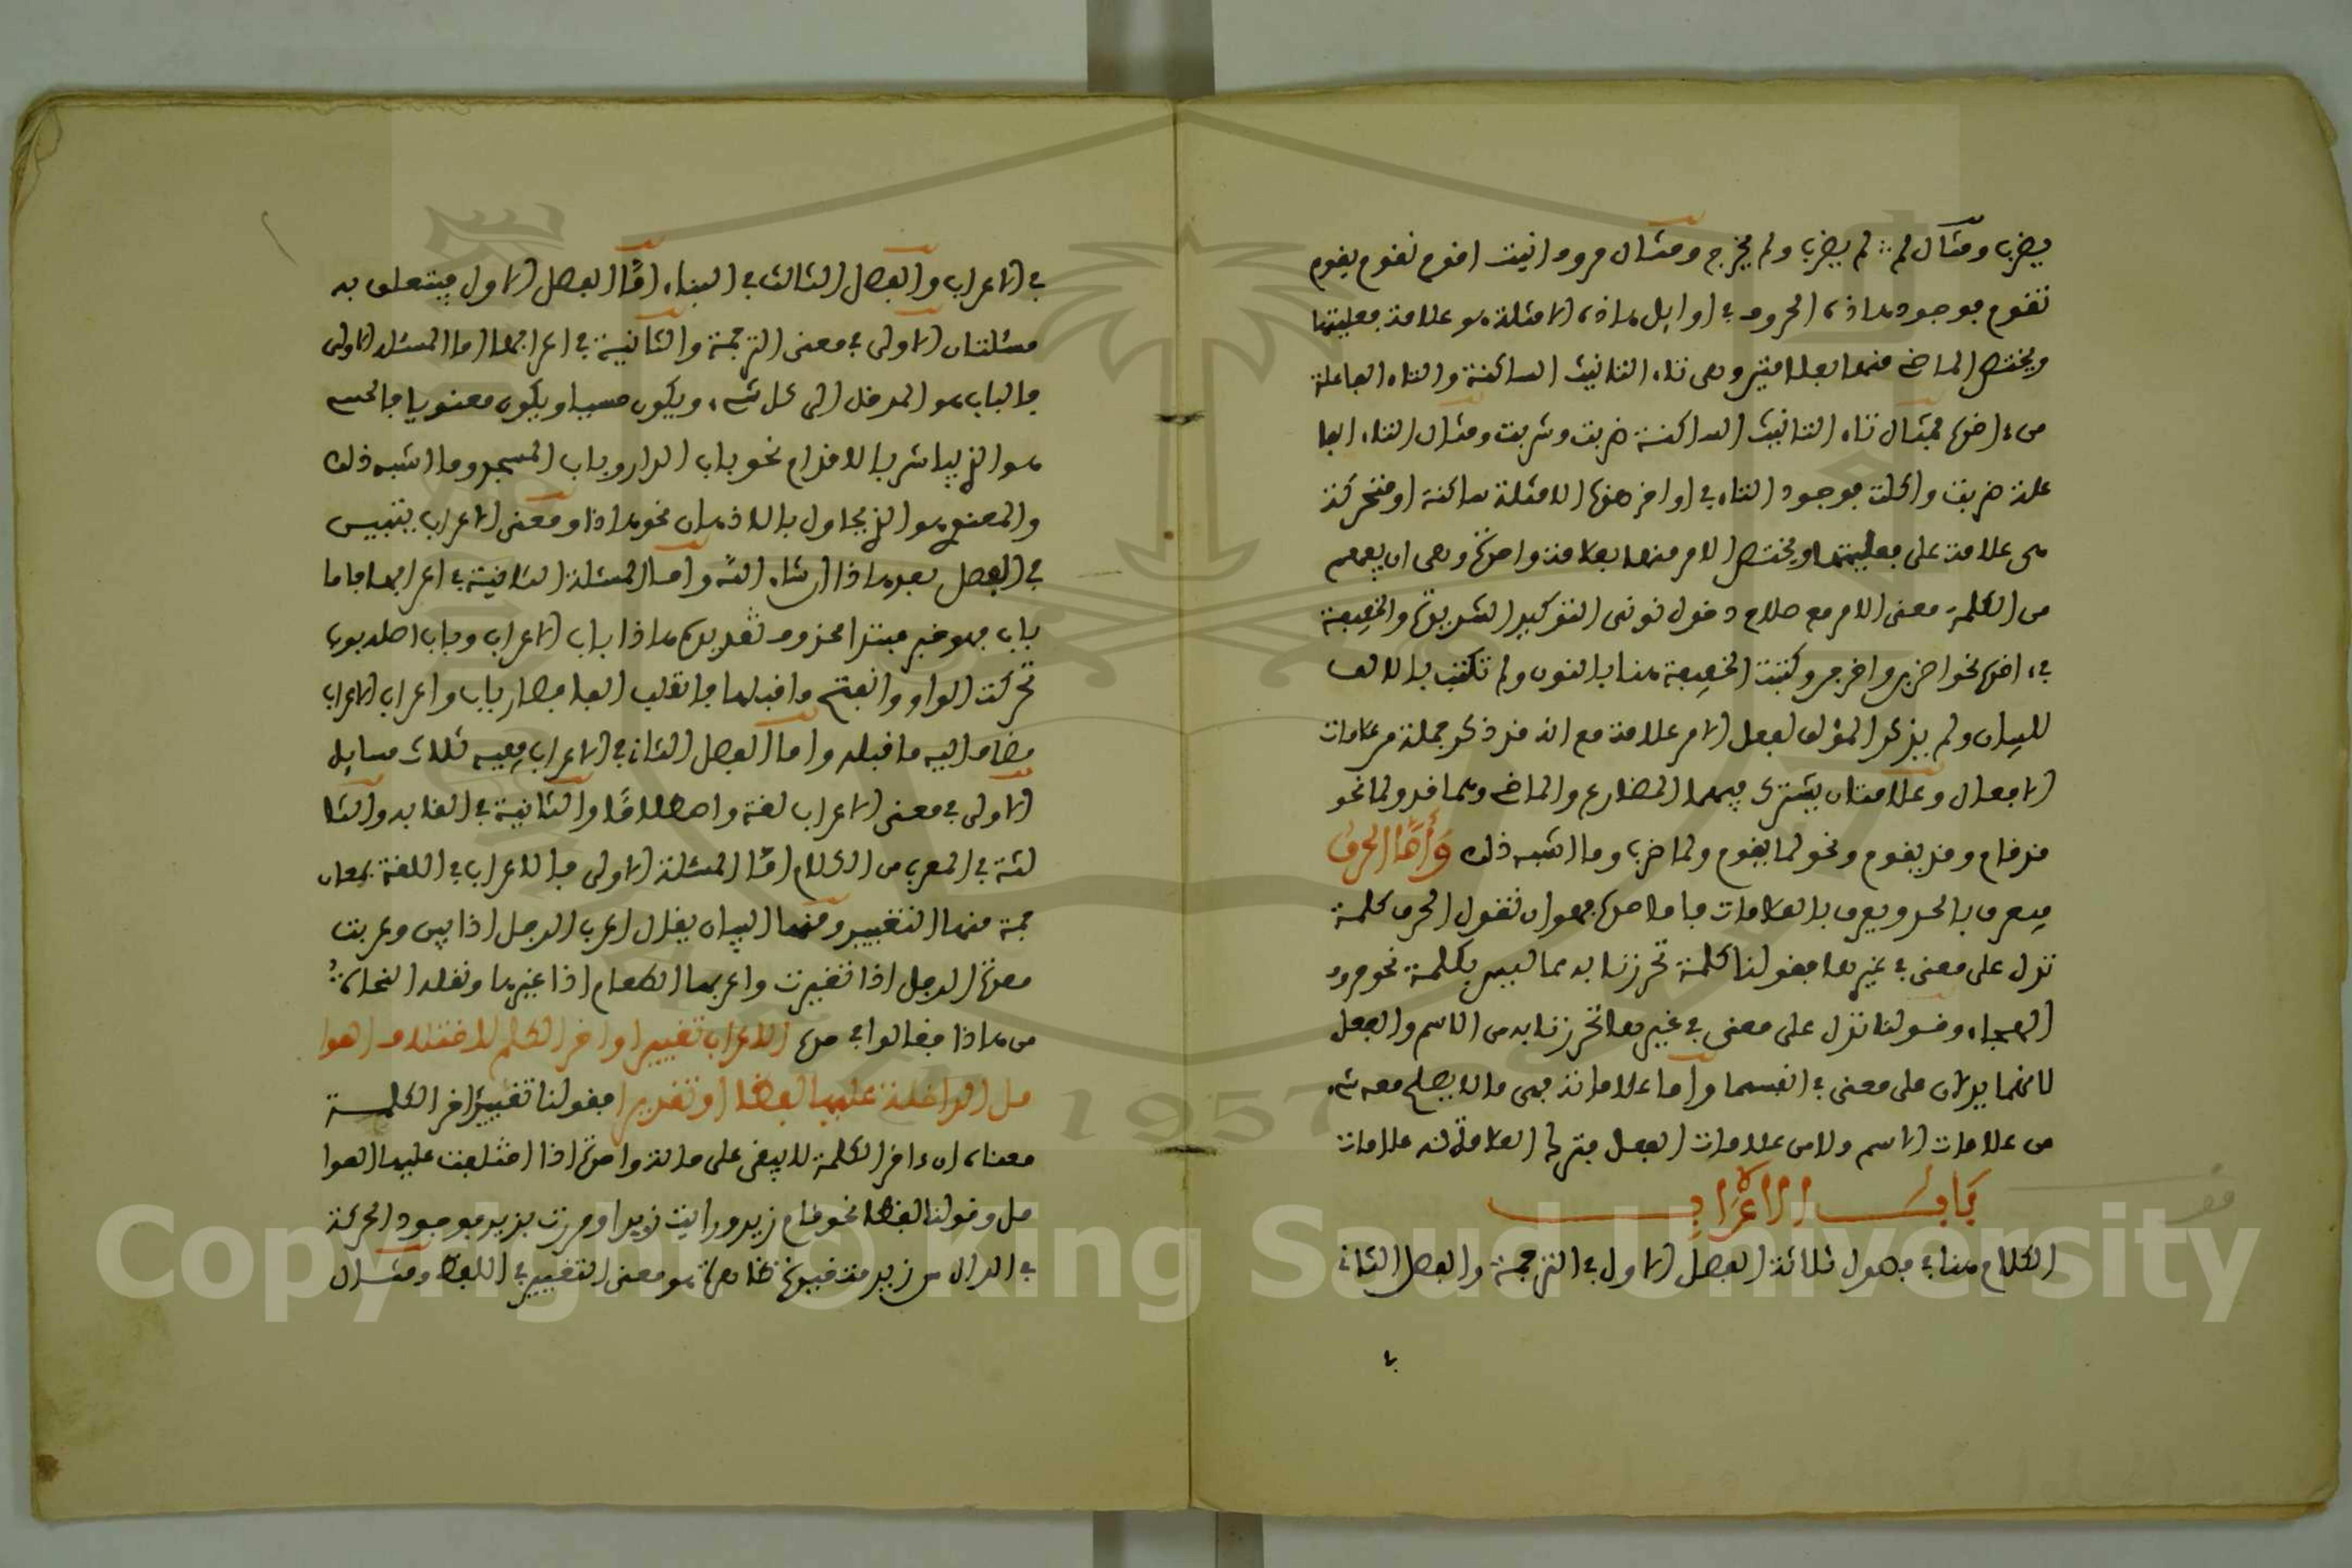 يضرب ومثال لم لم يضرب ولم يخرج ومثال حروف انيت اقوم نقوم يقوم
تقوم فوجود هاذه الحروف في اوايل هاذه الامثلة هو علامة فعليتها
ويختص الماضي منها بعلامتين وهي تاء التانيث الساكنة والتاء الفاعلة
من ءاخره فمثال تاء التانيث الساكنة ضربت وشربت ومثال التاء الفا
علة ضربت واكلت فوجود التاء في اواخر هذه الامثلة ساكنة او متحركة
هي علامة على فعليتها ويختص الامر منها بعلامة واحدة وهي ان يفهم
من الكلمة معنى الامر مع صلاح دخول نوني التوكيد الشديدة والخفيفة
في ءاخره نحو اضربن واخرجن وكتبت الخفيفة هنا بالنون ولم تكتب بالالف
للبيان ولم يذكر المؤلف لفعل الامر علامة مع انه قد ذكر جملة من علامات
الافعال وعلامتان يشترك فيهما المضارع والماضي وهما قد ولما نحو
قد قام وقد يقوم ونحو لما يقوم ولما ضرب وما اشبه ذلك وَأَمَّا الحرف
فيعرف بالحد ويعرف بالعلامات فاما حده فهو ان تقول الحرف كلمة
تدل على معنى في غيرها فقولنا كلمة تحرزنا به مما ليس بكلمة نحو حروف
الهجاء وقولنا تدل على معنى في غيرها تحرزنا به من الاسم والفعل
لانهما يدلان على معنى في انفسهما واما علاماته فهي ما لا يصلح معه شيء
من علامات الاسم ولا من علامات الفعل فترك العلامة له علامات
بَابُ الاعْرَابِ
الكلام هنا في فصول ثلاثة الفصل الاول في الترجمة والفصل الثاني
في
في الاعراب والفصل الثالث في البناء امّا الفصل الاول فيتعلق به
مسئلتان الاولى في معنى الترجمة والثانية في اعرابها اما المسئلة الاولى
فالباب هو المدخل الى كل شيء ويكون حسيا ويكون معنويا فالحسي
هو الذي يباشر بالاقدام نحو باب الدار وباب المسجد وما اشبه ذلك
والمعنوي هو الذي يحاول بالاذهان نحو هاذا ومعنى الاعراب يتبين
في الفصل بعد هاذا ان شاء الله واما المسئلة الثانية في اعرابها فاما
باب فهو خبر مبتدا محذوف تقديره هاذا باب الاعراب وباب اصله بوب
تحركت الواو وانفتح ما قبلها فانقلب الفا فصار باب واعراب الاعراب
مضاف اليه ما قبله واما الفصل الثاني في الاعراب ففيه ثلاث مسايل
الاولى في معنى الاعراب لغة واصطلاحًا والثانية في القابه والثا
لثة في المعرب من الكلام امّا المسئلة الاولى فالاعراب في اللغة بمعان
جمة منها التغيير ومنها البيان يقال اعرب الرجل اذا بين وعربت
معدة الرجل اذا تغيرت واعربها الطعام اذا غيرها ونقله النحاة
من هاذا فقالوا في حده الاعراب تغيير اواخر الكلم لاختلاف العوا
مل الداخلة عليها لفظا او تقديرا فقولنا تغيير ءاخر الكلمة
معناه ان ءاخر الكلمة لا يبقى على حالة واحدة اذا اختلفت عليها العوا
مل وقولنا لفظا نحو قام زيد ورايت زيدا ومررت بزيد فوجود الحركة
في الدال من زيد هو معنى التغيير في اللفظ ومثال